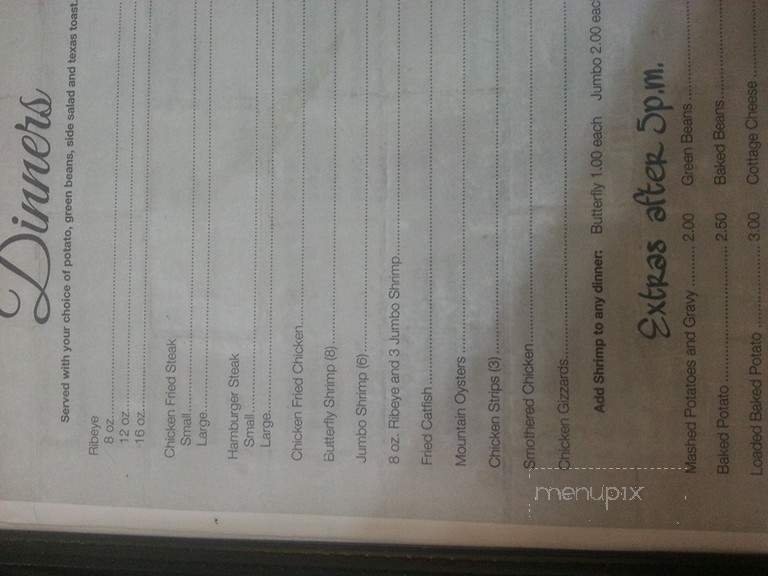 Dinners
Served with your choice of potato, green beans, side salad and texas toast.
Ribeye
8 oz.
12 oz.
16 oz.
Chicken Fried Steak
Small
Large
Hamburger Steak
Small
Large
Chicken Fried Chicken
Butterfly Shrimp (8)
Jumbo Shrimp (6)
8 oz. Ribeye and 3 Jumbo Shrimp
Fried Catfish
Mountain Oysters
Chicken Strips (3)
Smothered Chicken
Chicken Gizzards
Add Shrimp to any dinner: Butterfly 1.00 each Jumbo 2.00 each
Extras after 5p.m.
Mashed Potatoes and Gravy 2.00 Green Beans
Baked Potato 2.50 Baked Beans
Loaded Baked Potato 3.00 Cottage Cheese
menupix